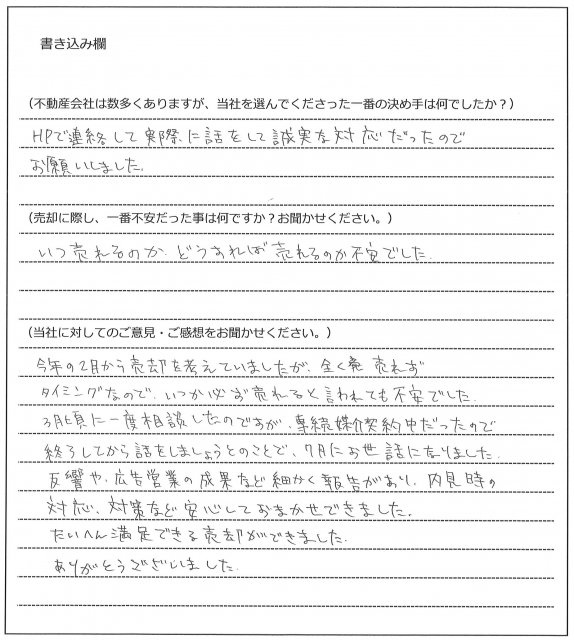 書き込み欄
（不動産会社は数多くありますが、当社を選んでくださった一番の決め手は何でしたか？）
HPで連絡して実際に話をして誠実な対応だったので
お願いしました。
（売却に際し、一番不安だった事は何ですか？お聞かせください。）
いつ売れるのか、どうすれば売れるのか不安でした。
（当社に対してのご意見・ご感想をお聞かせください。）
今年の2月から売却を考えていましたが、全く売れず
タイミングなので、いつか必ず売れると言われても不安でした。
3月頃に一度相談したのですが、専続媒介契約中だったので
終了してから話をしましょうとのことで、7月にお世話になりました。
反響や、広告営業の成果など細かく報告があり、内見時の
対応、対策など安心しておまかせできました。
たいへん満足できる売却ができました。
ありがとうございました。